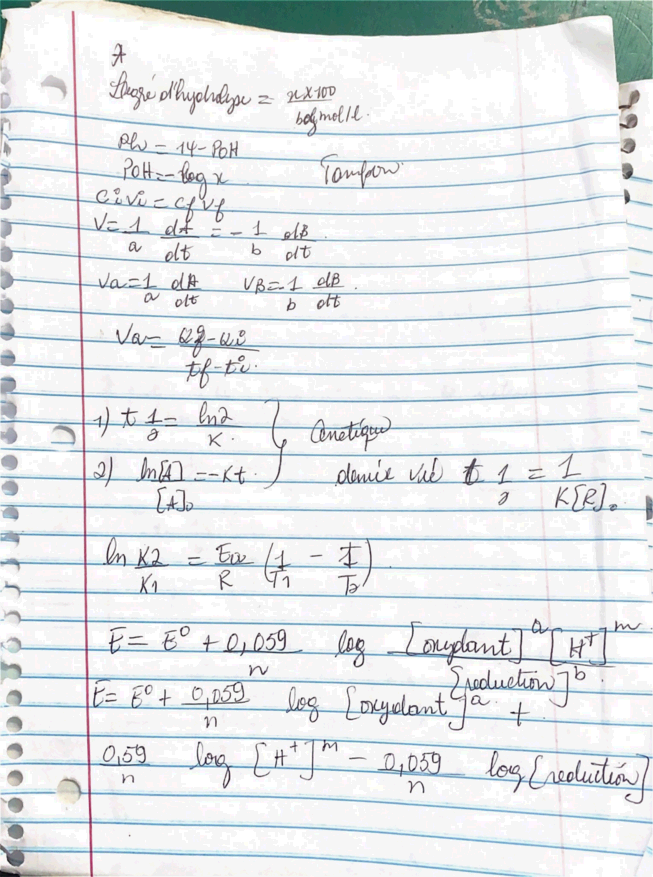 A
Degré d'hydrolyse = x x 100 / mol/l.
Ph = 14 - POH
POH = -log x Tampon
CiVi = CfVf
V = 1/a dA/dt = - 1/b dB/dt
Va = 1/a dA/dt VB = 1/b dB/dt
Va = Qf - Qi / tf - ti
1) t 1/2 = ln2 / K.
Cinetique
2) ln[A] / [A]o = -Kt. demie vie t 1/2 = 1 / K[R]o
ln K2/K1 = Ea/R (1/T1 - 1/T2)
E = E° + 0,059/n log [oxydant]^a [H+]^m / [reduction]^b
E = E° + 0,059/n log [oxydant]^a +
0,59/n log [H+]^m - 0,059/n log [reduction]